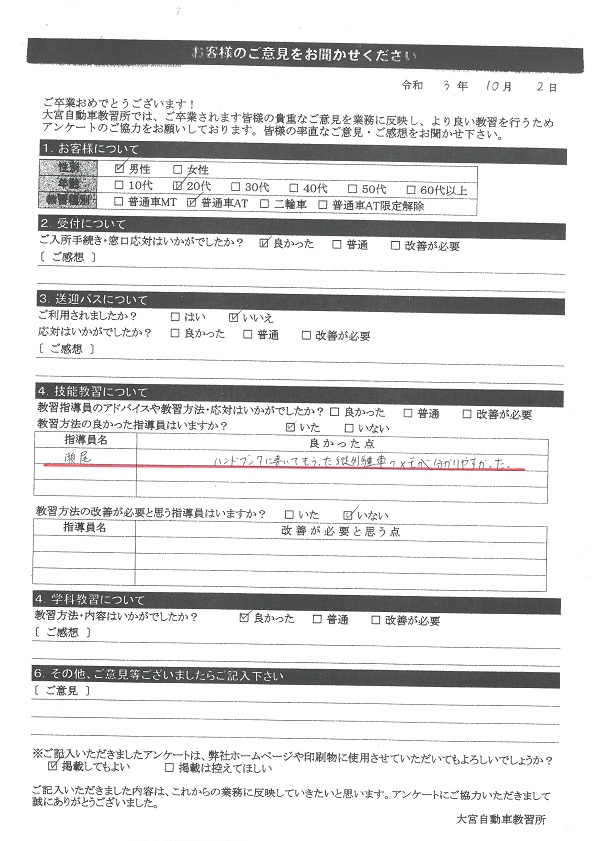 お客様のご意見をお聞かせください
令和 3 年 10 月 2 日
ご卒業おめでとうございます！
大宮自動車教習所では、ご卒業されます皆様の貴重なご意見を業務に反映し、より良い教習を行うため
アンケートのご協力をお願いしております。皆様の率直なご意見・ご感想をお聞かせ下さい。
1. お客様について
性別 ☑男性 □女性
年齢 □10代 ☑20代 □30代 □40代 □50代 □60代以上
教習種別 □普通車MT ☑普通車AT □二輪車 □普通車AT限定解除
2. 受付について
ご入所手続き・窓口応対はいかがでしたか？ ☑良かった □普通 □改善が必要
〔 ご感想 〕
3. 送迎バスについて
ご利用されましたか？ □はい ☑いいえ
応対はいかがでしたか？ □良かった □普通 □改善が必要
〔 ご感想 〕
4. 技能教習について
教習指導員のアドバイスや教習方法・応対はいかがでしたか？ □良かった □普通 □改善が必要
教習方法の良かった指導員はいますか？ ☑いた □いない
指導員名 良かった点
瀬尾 ハンドブックに書いてもらった縦列駐車のメモが分かりやすかった。
教習方法の改善が必要と思う指導員はいますか？ □いた ☑いない
指導員名 改善が必要と思う点
4. 学科教習について
教習方法・内容はいかがでしたか？ ☑良かった □普通 □改善が必要
〔 ご感想 〕
6. その他、ご意見等ございましたらご記入下さい
〔 ご意見 〕
※ご記入いただきましたアンケートは、弊社ホームページや印刷物に使用させていただいてもよろしいでしょうか？
☑掲載してもよい □掲載は控えてほしい
ご記入いただきました内容は、これからの業務に反映していきたいと思います。アンケートにご協力いただきまして
誠にありがとうございました。
大宮自動車教習所